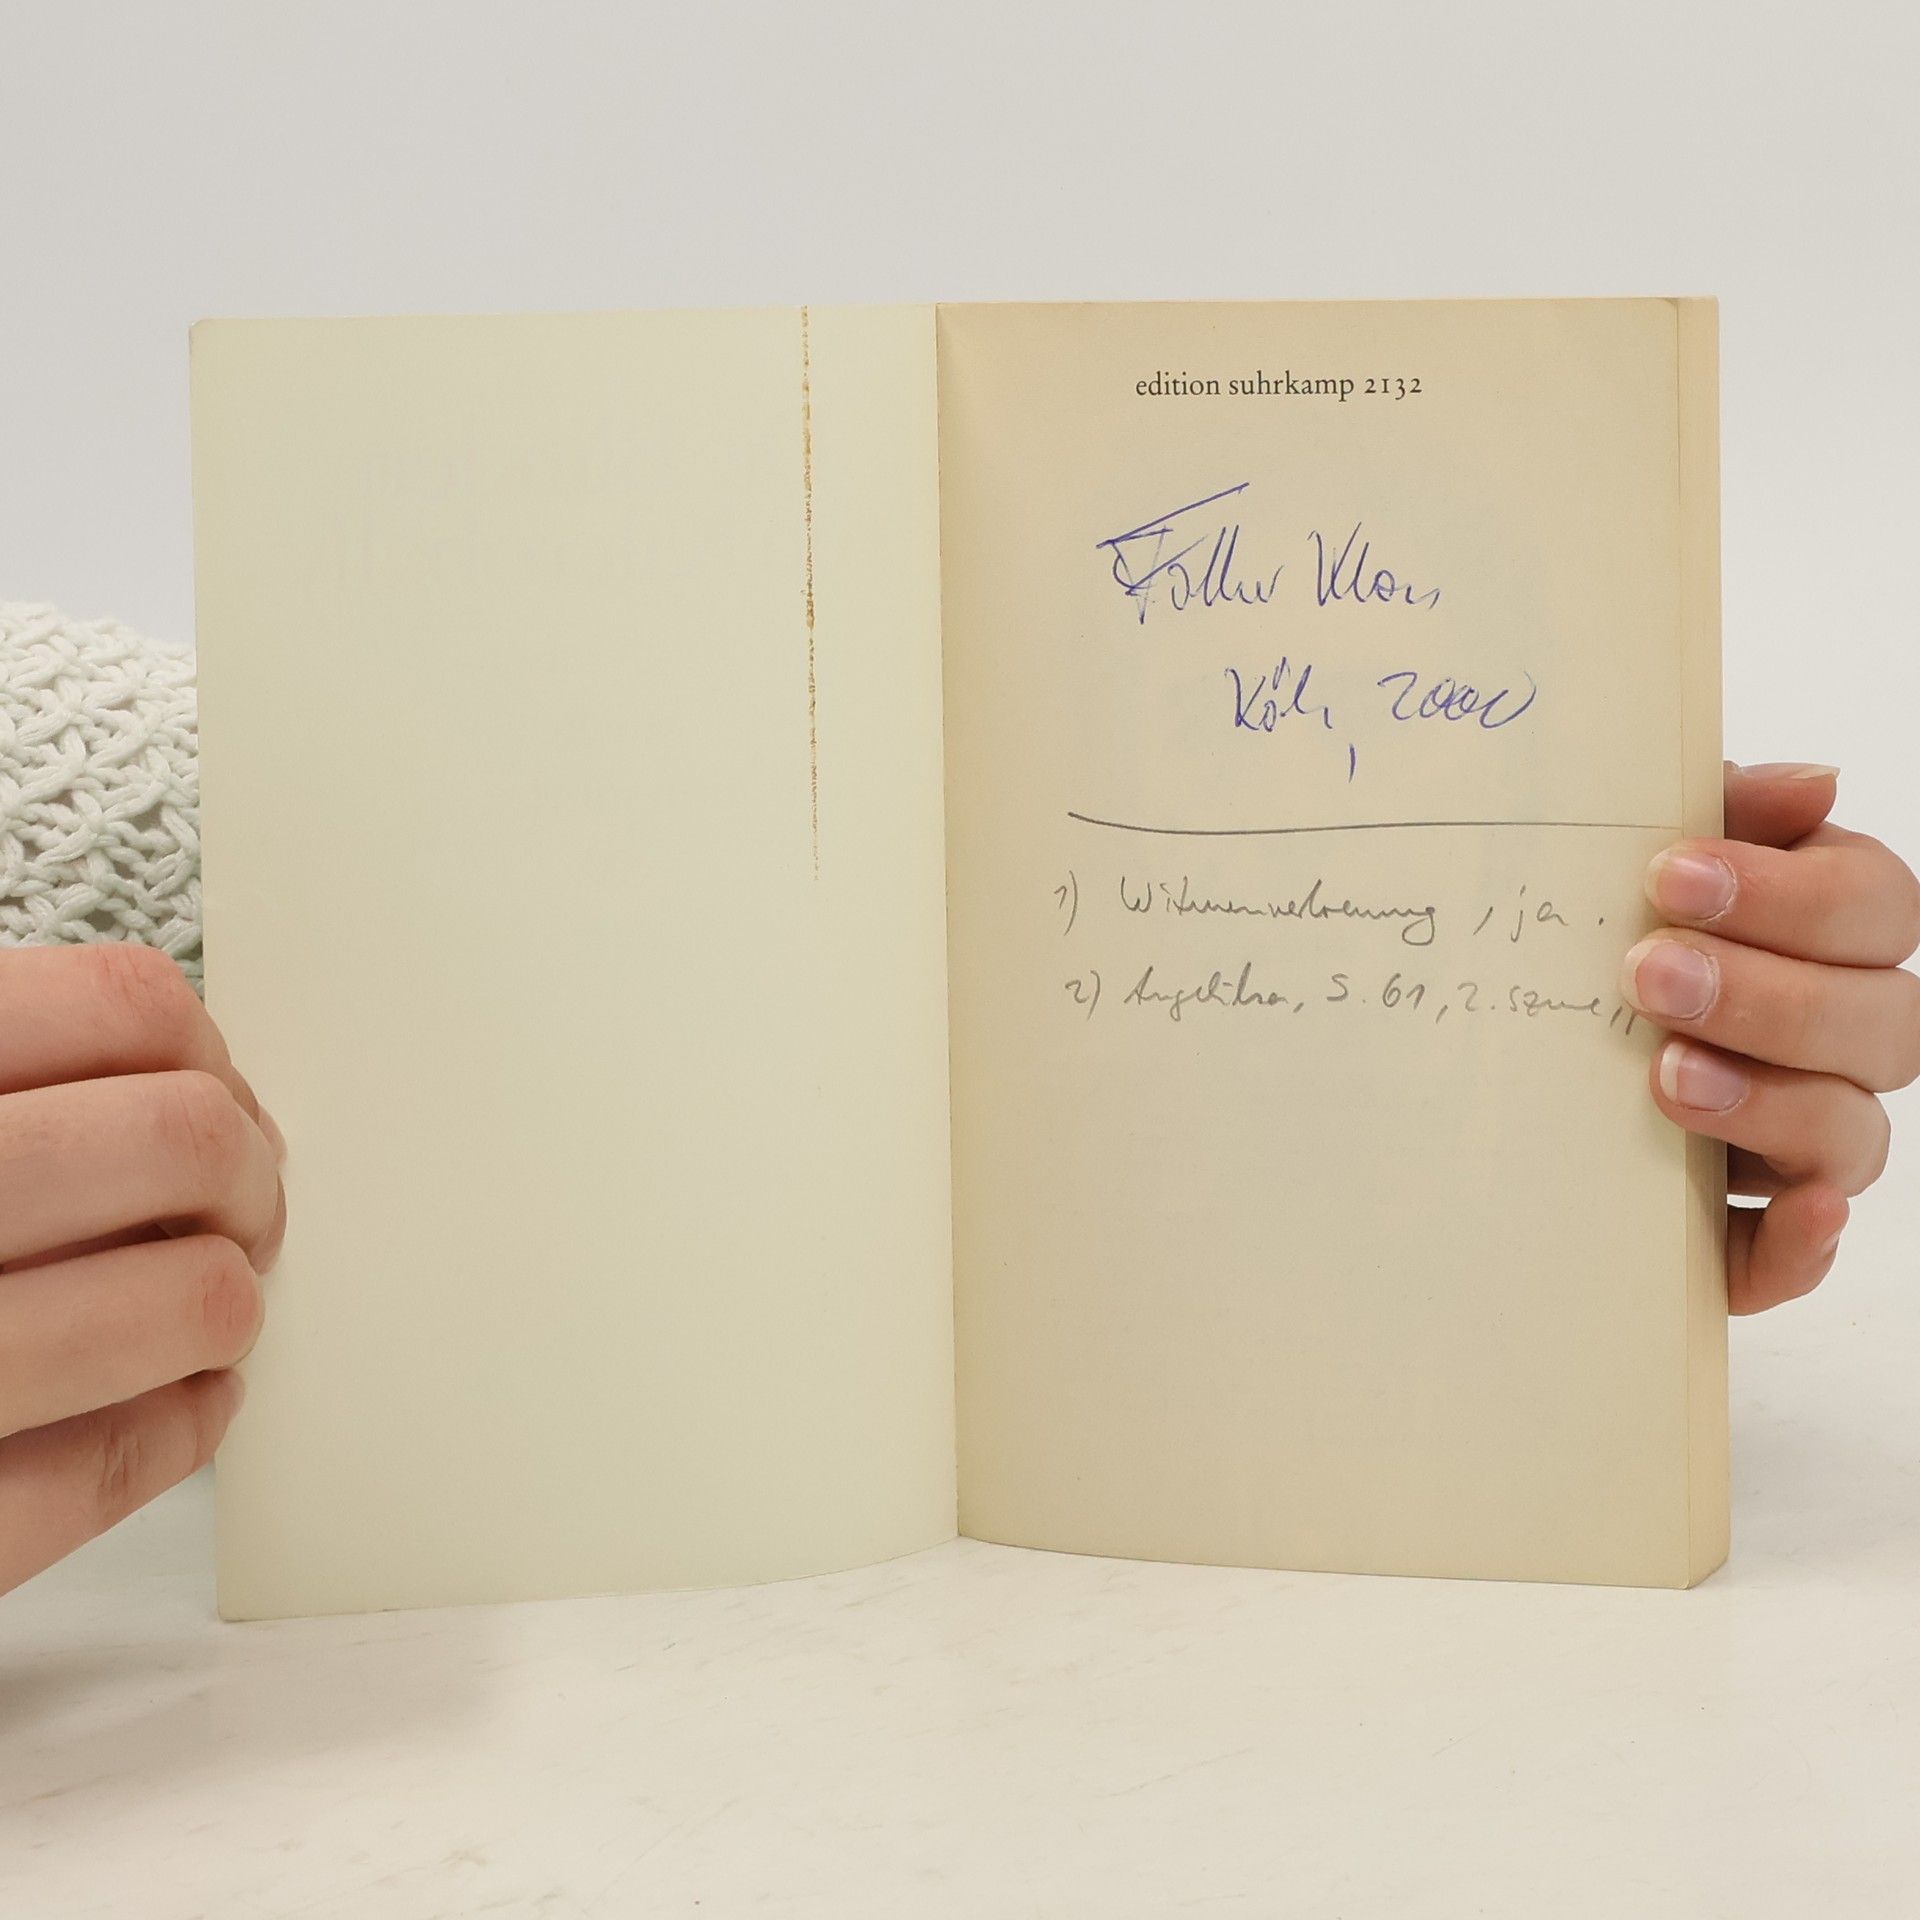 edition suhrkamp 2132
Köln, 2000
1) Witwenverbrennung, ja.
2) Angelika, S. 61, 2. Szene,